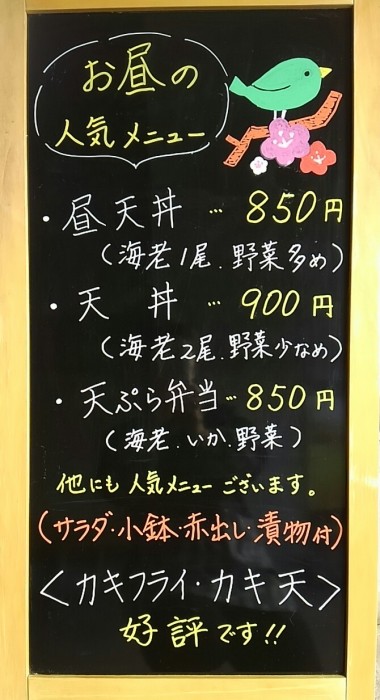 お昼の
人気メニュー
・昼天丼…850円
(海老1尾.野菜多め)
・天 丼…900円
(海老2尾.野菜少なめ)
・天ぷら弁当…850円
(海老.いか.野菜)
他にも人気メニューございます。
(サラダ・小鉢・赤出し・漬物付)
<カキフライ・カキ天>
好評です!!